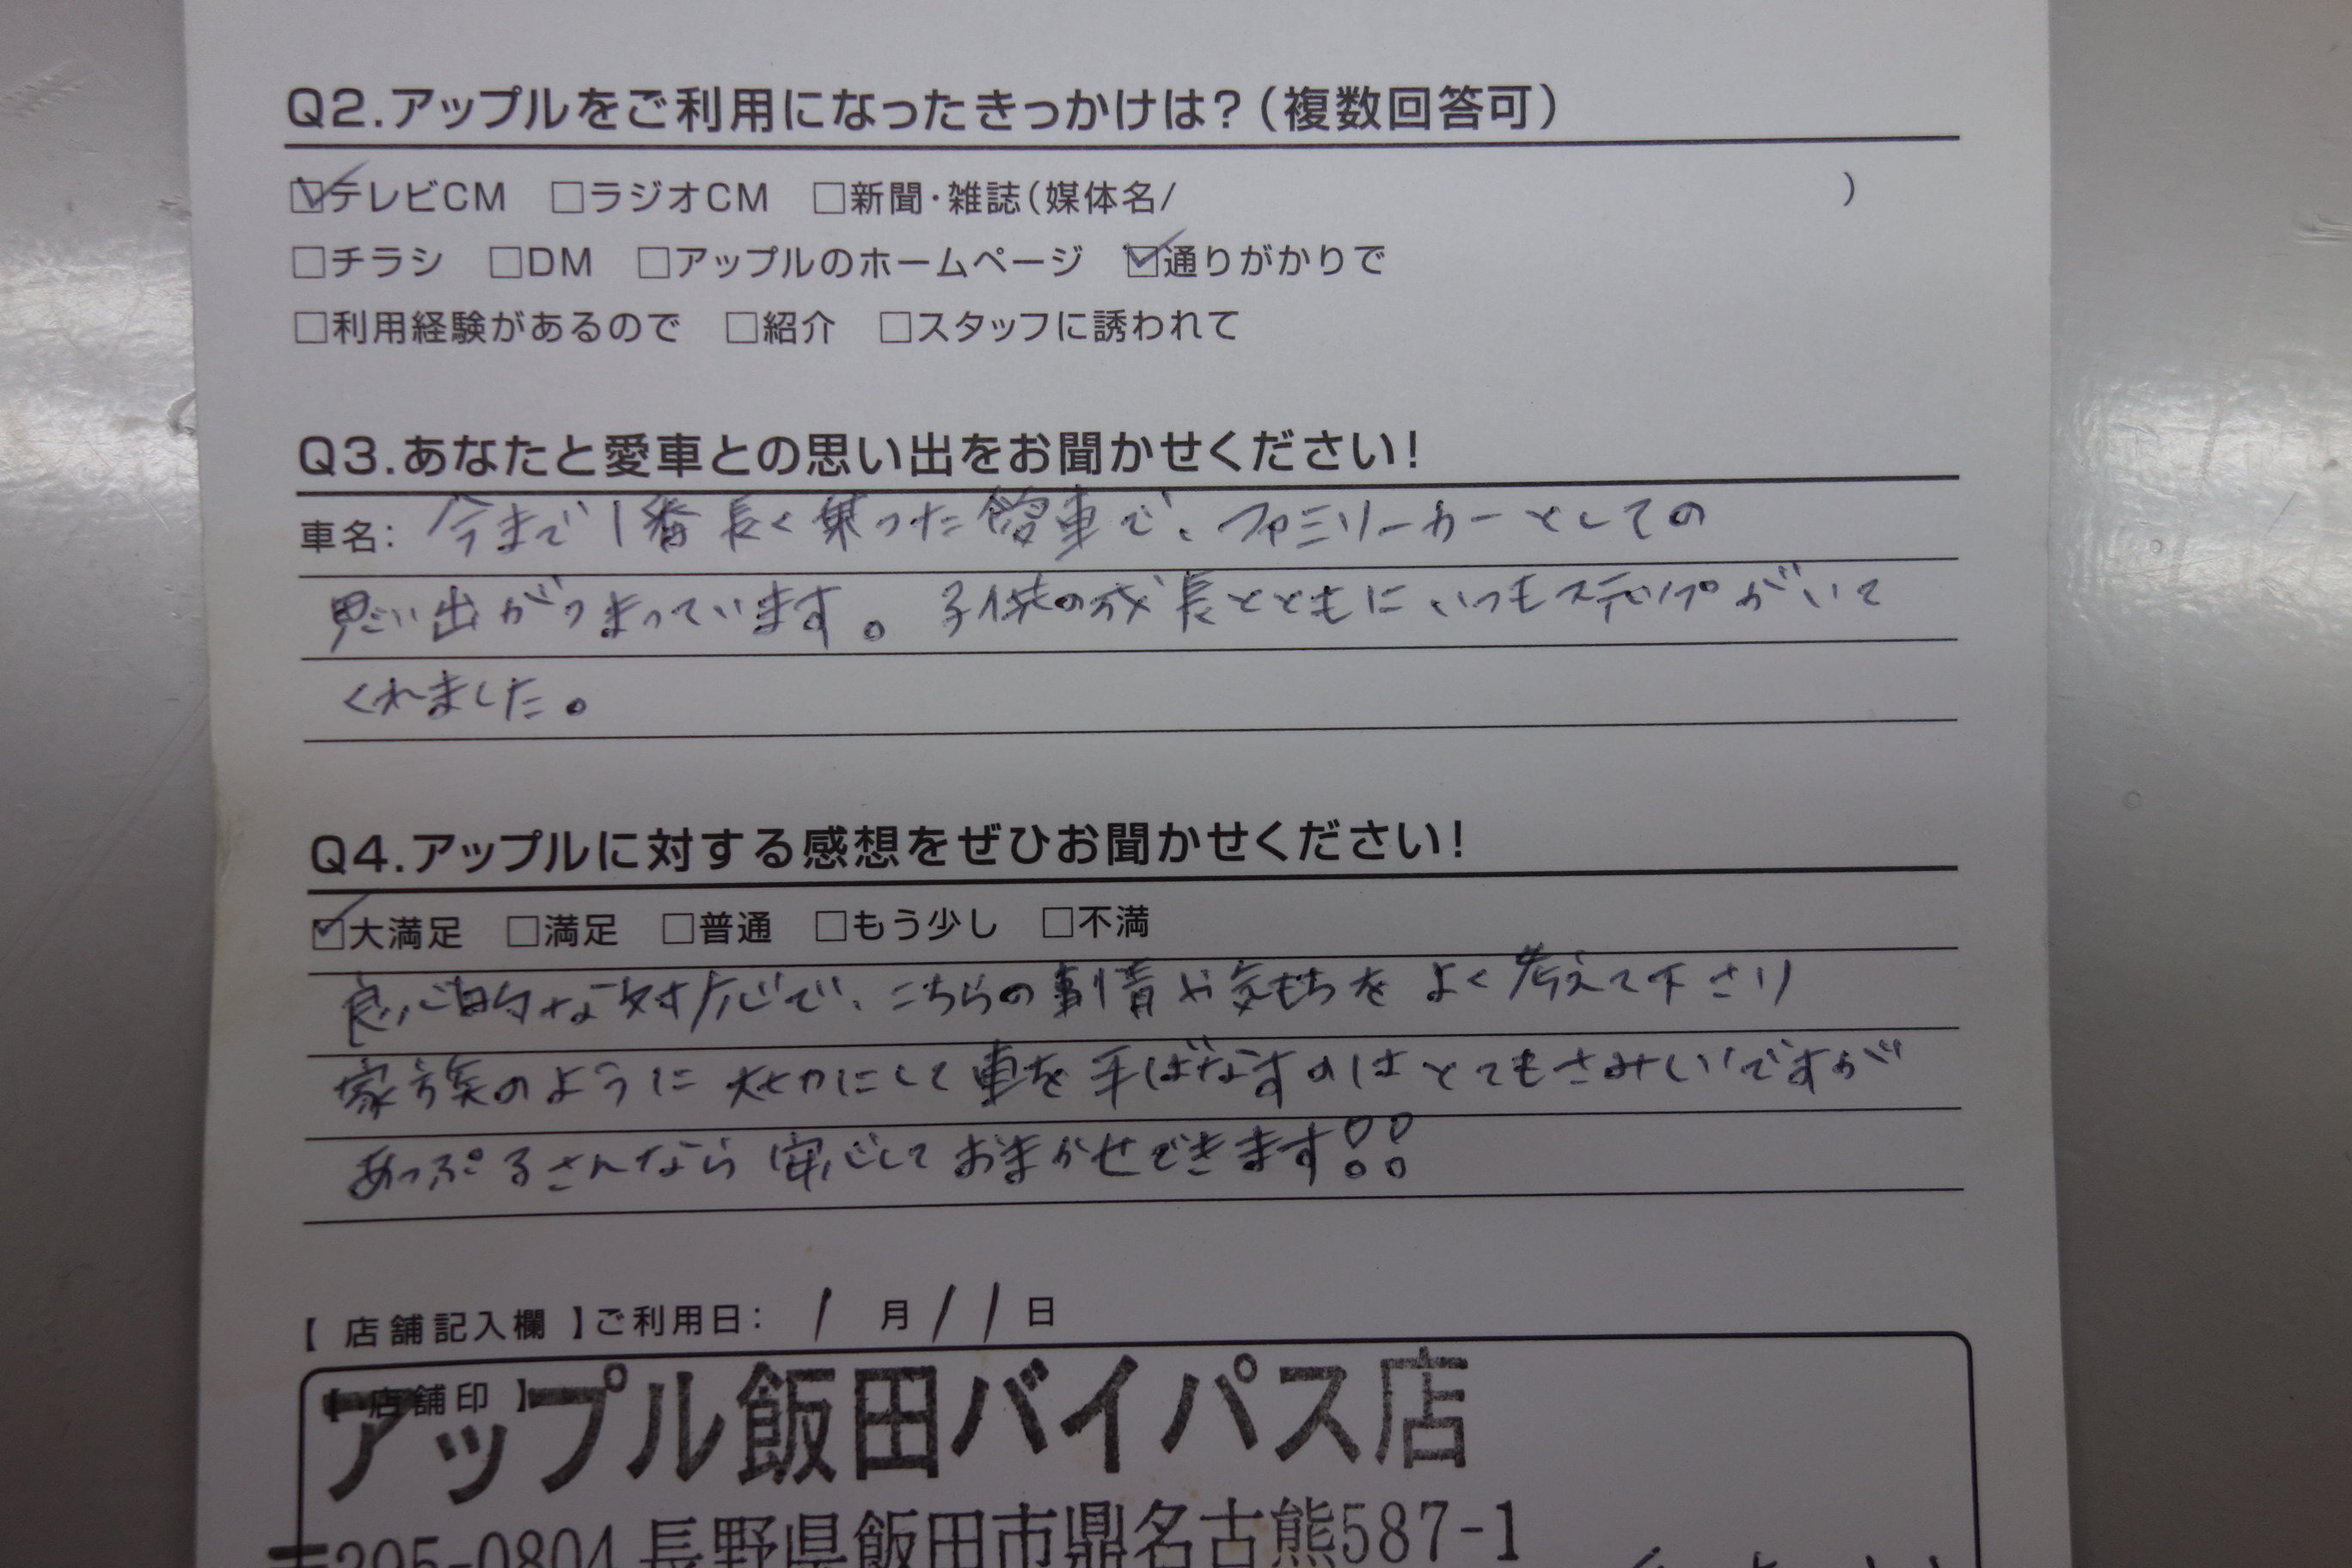 Q2.アップルをご利用になったきっかけは？（複数回答可）
☑テレビCM □ラジオCM □新聞・雑誌（媒体名/ ）
□チラシ □DM □アップルのホームページ ☑通りがかりで
□利用経験があるので □紹介 □スタッフに誘われて
Q3.あなたと愛車との思い出をお聞かせください！
車名： 今まで1番長く乗った愛車で、ファミリーカーとしての
思い出がつまっています。子供の成長とともにいつもステップがいて
くれました。
Q4.アップルに対する感想をぜひお聞かせください！
☑大満足 □満足 □普通 □もう少し □不満
良心的な対応で、こちらの事情や気もちをよく考えて下さり
家族のように大切にして車を手ばなすのはとてもさみしいですが
あっぷるさんなら安心しておまかせできます!!
【 店舗記入欄 】ご利用日： 1 月 11 日
【 店舗印 】
アップル飯田バイパス店
〒395-0804 長野県飯田市鼎名古熊587-1